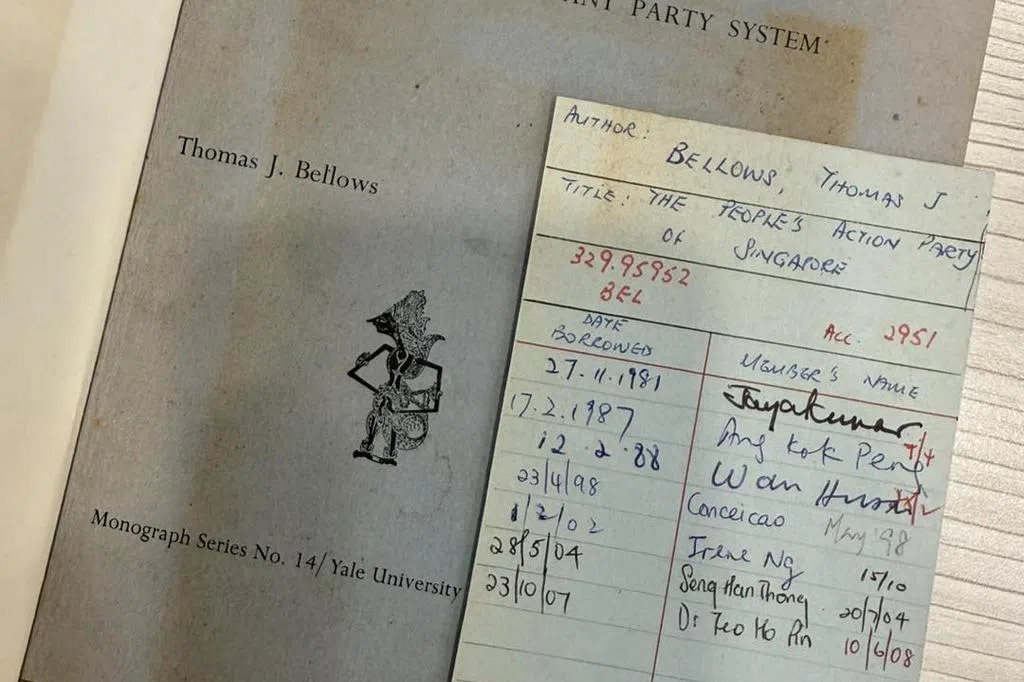 ANT PARTY SYSTEM
Thomas J. Bellows
Monograph Series No. 14/ Yale University
AUTHOR: BELLOWS, THOMAS J
TITLE: THE PEOPLE'S ACTION PARTY
OF SINGAPORE
329.95952
BEL
ACC. 2951
DATE BORROWED MEMBER'S NAME
27.11.1981 Jayakumar
17.2.1987 Ang Kok Peng
12.2.88 Wan
23/4/98 Conceicao May '98
1/2/02 Irene Ng 15/10
28/5/04 Seng Han Thong 20/7/04
23/10/07 Dr Teo Ho Pin 10/6/08